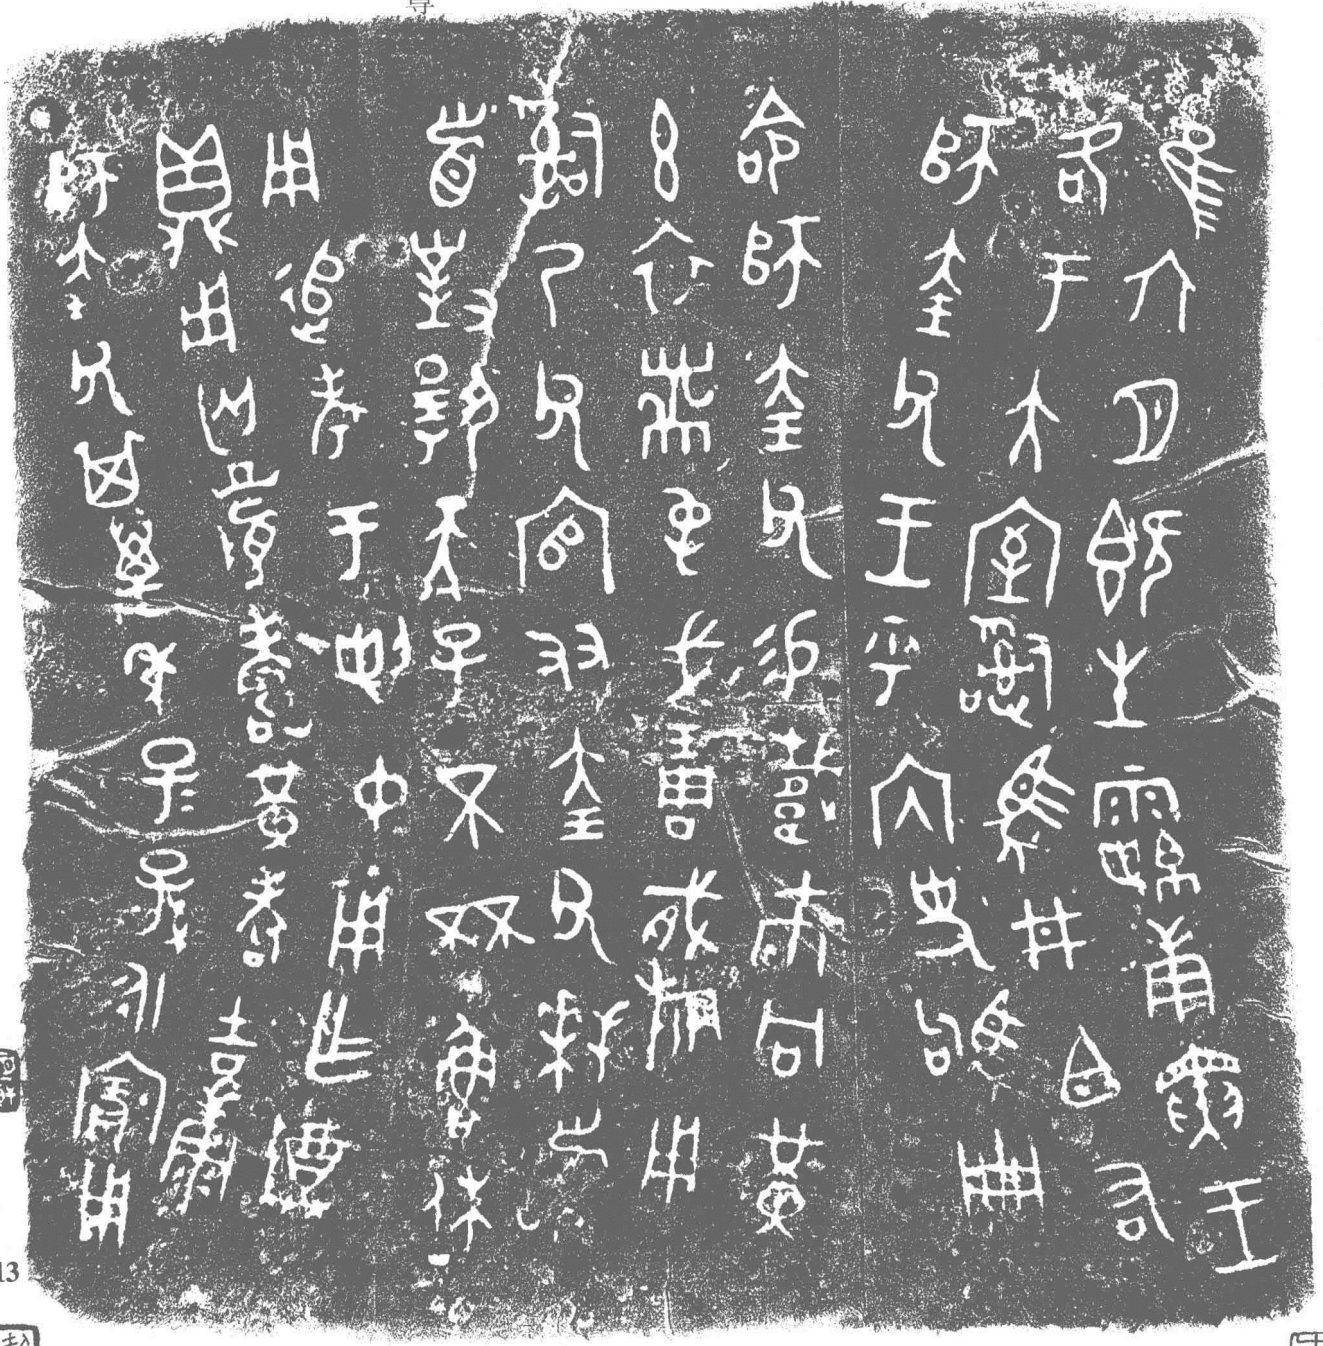 隹六月既生霸庚寅王
各于大室𤔲馬井白右
師奎父王乎内史駒冊
命師奎父易𩎟巿冋黃
玄衣黹屯戈琱㦰旂用
𤔲乃父官友奎父拜𩒨
首對揚天子不杯魯休
用追考于剌中用乍尊
鼎用匄眉壽黃耇吉康
師奎父其萬年子子孫永寶用
13